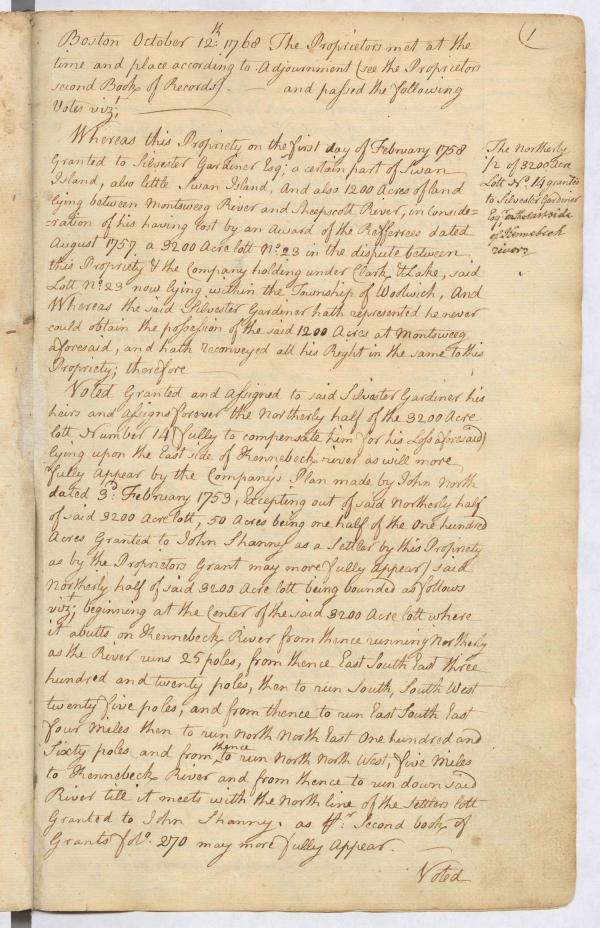 (1
Boston October 12th. 1768 The Proprietors met at the
time and place according to Adjournment (see the Proprietors
second Book of Records). — and passed the following
Votes vizt.
Whereas this Propriety on the first day of February 1758
Granted to Silvester Gardiner Esq; a certain part of Swan
Island, also little Swan Island, And also 1200 Acres of land
lying between Montsweeg River and Sheepscott River, in Conside-
-ration of his having lost by an Award of the Refferees dated
August 1757 a 3200 Acre lott No. 23 in the dispute between
this Propriety & the Company holding under Clark & Lake, said
Lott No. 23 now lying within the Township of Woolwich, And
Whereas the said Silvester Gardiner hath represented he never
could obtain the possession of the said 1200 Acres at Montsweeg
aforesaid, and hath reconveyed all his Right in the same to this
Propriety; therefore
The Northerly
1/2 of 3200 Acre
Lott No. 14 granted
to Silvester Gardiner
Esqr. on the East side
of Kennebeck
river
Voted Granted and Assigned to said Silvester Gardiner his
heirs and assigns forever the Northerly half of the 3200 Acre
lott Number 14 (fully to compensate him for his Loss aforesaid)
lying upon the East side of Kennebeck river as will more
fully Appear by the Company's Plan made by John North
dated 3d. February 1753, Excepting out of said Northerly half
of said 3200 Acre lott, 50 Acres being one half of the One hundred
Acres Granted to John Shanny as a Settler by this Propriety
as by the Proprietors Grant may more fully Appear) said
Northerly half of said 3200 Acre lott being bounded as follows
vizt; beginning at the Center of the said 3200 Acre lott where
it abutts on Kennebeck River from thence running Northerly
as the River runs 25 poles, from thence East South East three
hundred and twenty poles, then to run South, South West
twenty five poles, and from thence to run East South East
four Miles then to run North North East One hundred and
Sixty poles and from thence to run North North West, five Miles
to Kennebeck River and from thence to run down said
River till it meets with the North line of the Settlers lott
Granted to John Shanny. as pr. Second book of
Grants folo. 270 may more fully Appear.
Voted